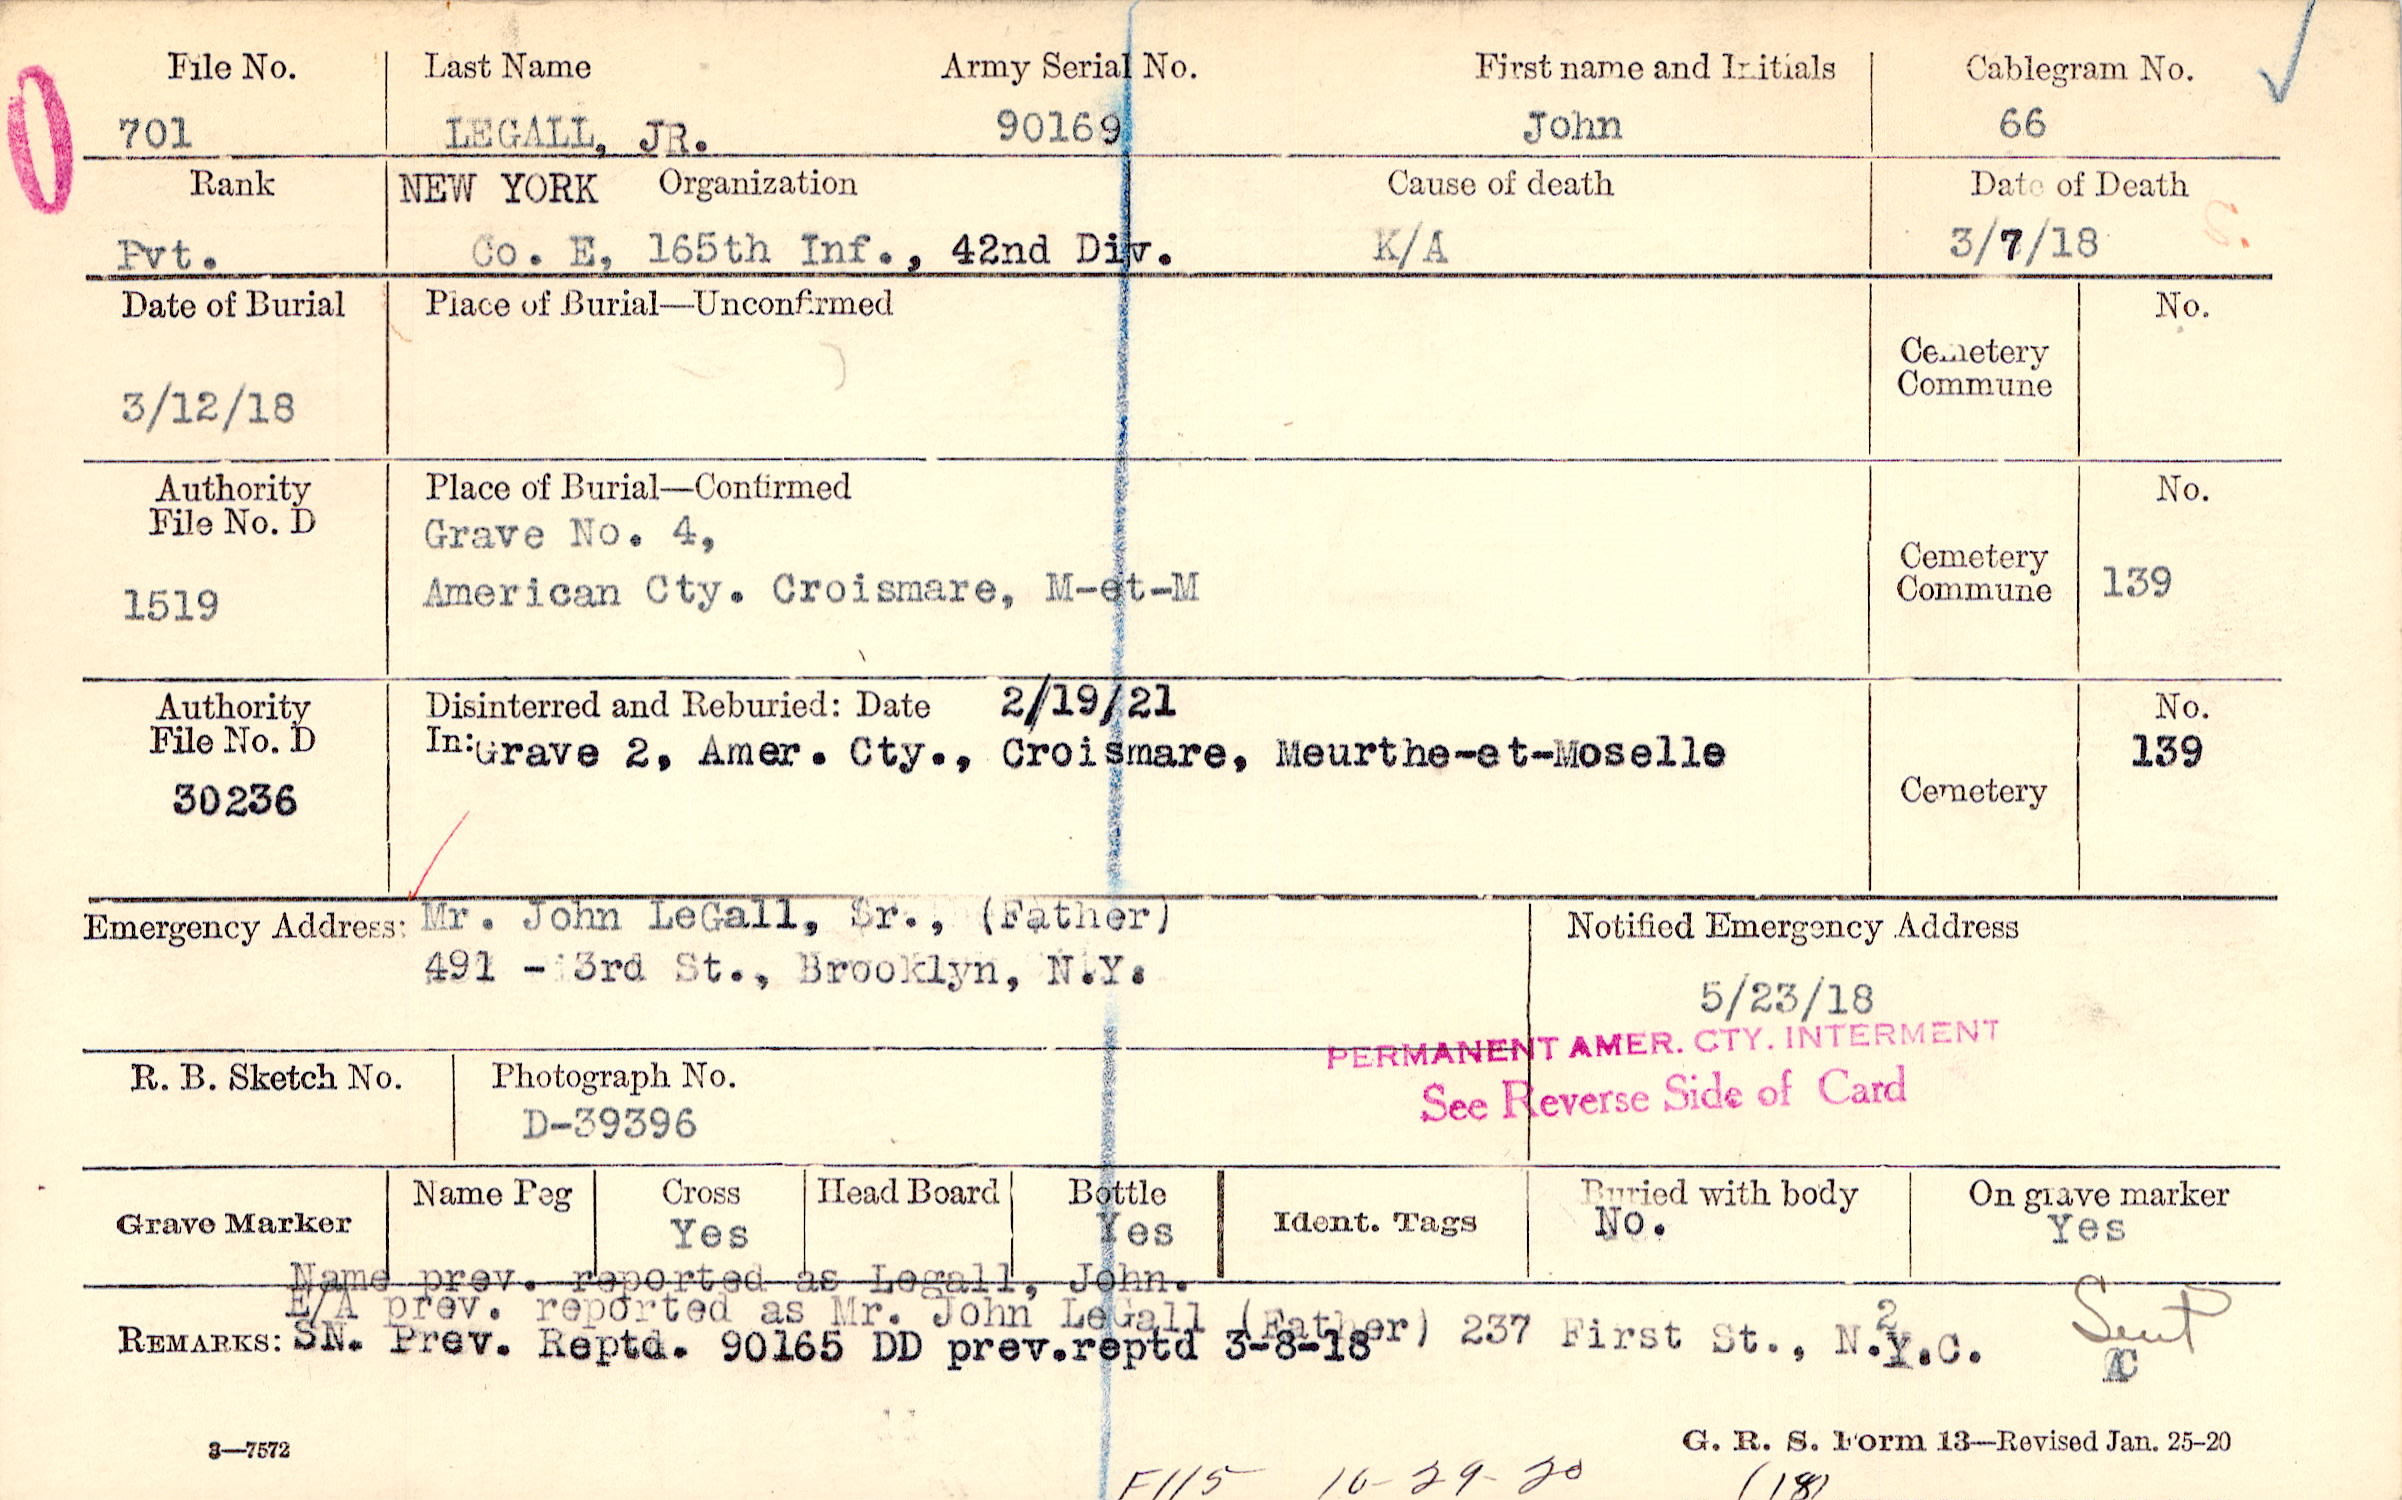 File No. Last Name Army Serial No. First name and Initials Cablegram No.
701 LEGALL, JR. 90169 John 66
Rank NEW YORK Organization Cause of death Date of Death
Pvt. Co. E, 165th Inf., 42nd Div. K/A 3/7/18
Date of Burial Place of Burial—Unconfirmed No.
Cemetery
Commune
3/12/18
Authority Place of Burial—Confirmed No.
File No. D
Grave No. 4,
Cemetery
1519 American Cty. Croismare, M-et-M Commune 139
Authority Disinterred and Reburied: Date 2/19/21 No.
File No. D In: Grave 2, Amer. Cty., Croismare, Meurthe-et-Moselle 139
30236 Cemetery
Emergency Address: Mr. John LeGall, Sr., (Father) Notified Emergency Address
491 - 3rd St., Brooklyn, N.Y.
5/23/18
PERMANENT AMER. CTY. INTERMENT
See Reverse Side of Card
R. B. Sketch No. Photograph No.
D-39396
Grave Marker Name Peg Cross Head Board Bottle Ident. Tags Buried with body On grave marker
Yes Yes No. Yes
Name prev. reported as Legall, John.
E/A prev. reported as Mr. John LeGall (Father) 237 First St., N.Y.C.
2
Sent
REMARKS: SN. Prev. Reptd. 90165 DD prev.reptd 3-8-18
3—7572 G. R. S. Form 13—Revised Jan. 25-20
F115 10-29-20 (18)